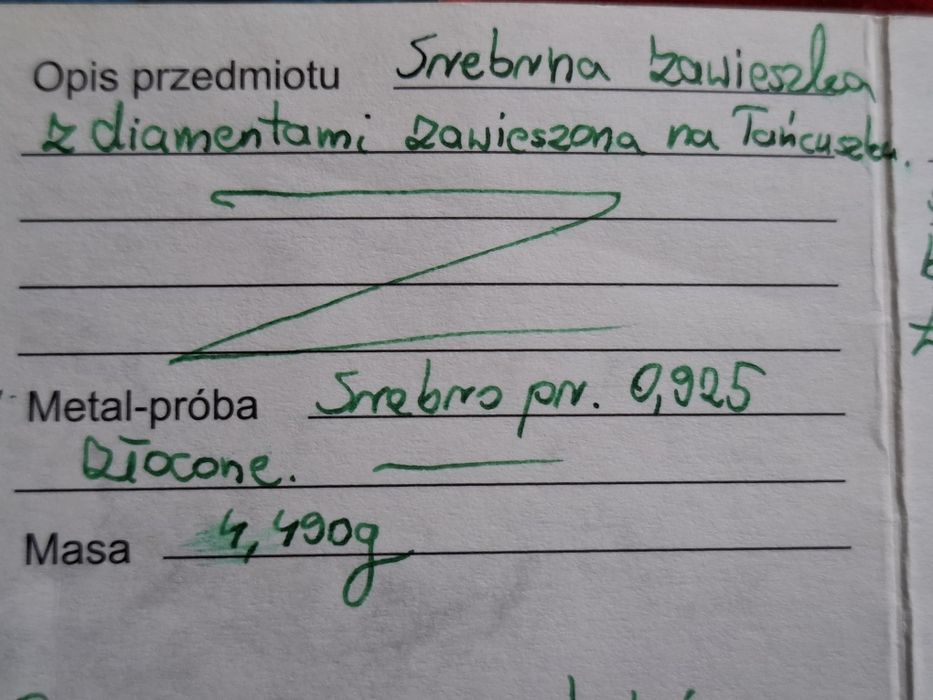 Opis przedmiotu Srebrna zawieszka
z diamentami zawieszona na łańcuszku.
Metal-próba Srebro pr. 0,925
złocone.
Masa 4,490g